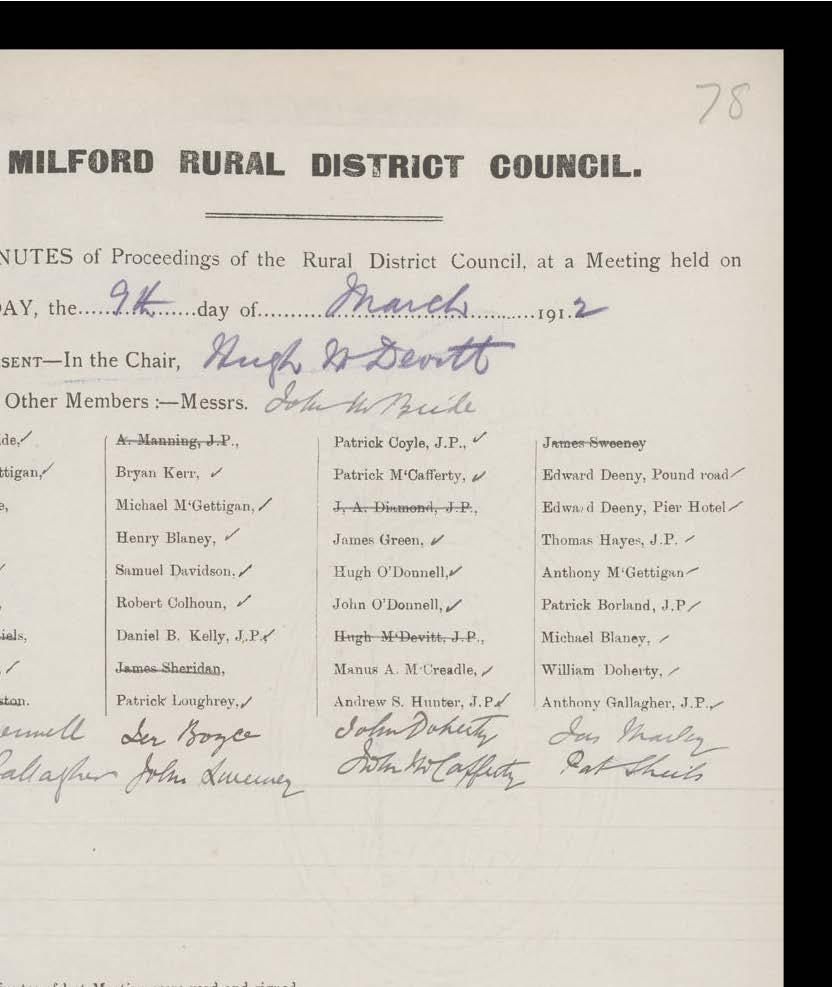 78
MILFORD RURAL DISTRICT COUNCIL.
NUTES of Proceedings of the Rural District Council, at a Meeting held on
AY, the.....9th......day of..........March..........191.2
SENT—In the Chair, Hugh McDevitt
Other Members :—Messrs. John McBride
de, A. Manning, J.P., Patrick Coyle, J.P., James Sweeney
ttigan, Bryan Kerr, Patrick M'Cafferty, Edward Deeny, Pound road
e, Michael M'Gettigan, J. A. Diamond, J.P., Edward Deeny, Pier Hotel
Henry Blaney, James Green, Thomas Hayes, J.P.
Samuel Davidson, Hugh O'Donnell, Anthony M'Gettigan
, Robert Colhoun, John O'Donnell, Patrick Borland, J.P
iels, Daniel B. Kelly, J.P. Hugh M'Devitt, J.P., Michael Blaney,
, James Sheridan, Manus A. M'Creadle, William Doherty,
ston. Patrick Loughrey, Andrew S. Hunter, J.P. Anthony Gallagher, J.P.,
Boyce John Doherty Jas
Gallagher John Sweeney John McCafferty Pat Sheils